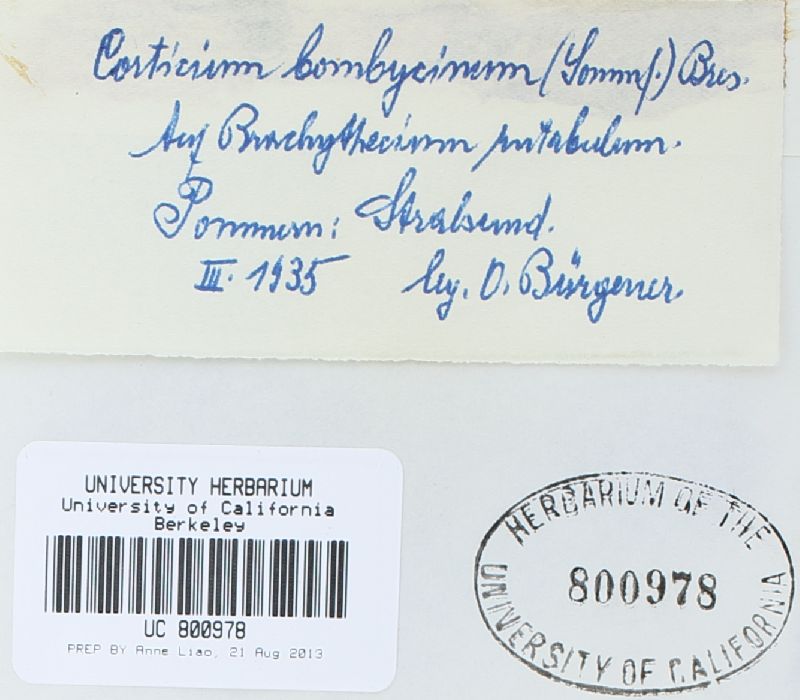 Corticium bombycinum (Sommf.) Bres.
Auf Brachythecium rutabulum.
Pommern: Stralsund.
III. 1935 leg. O. Bürgener.
UNIVERSITY HERBARIUM
University of California
Berkeley
UC 800978
PREP BY Anne Liao, 21 Aug 2013
HERBARIUM OF THE
800978
UNIVERSITY OF CALIFORNIA